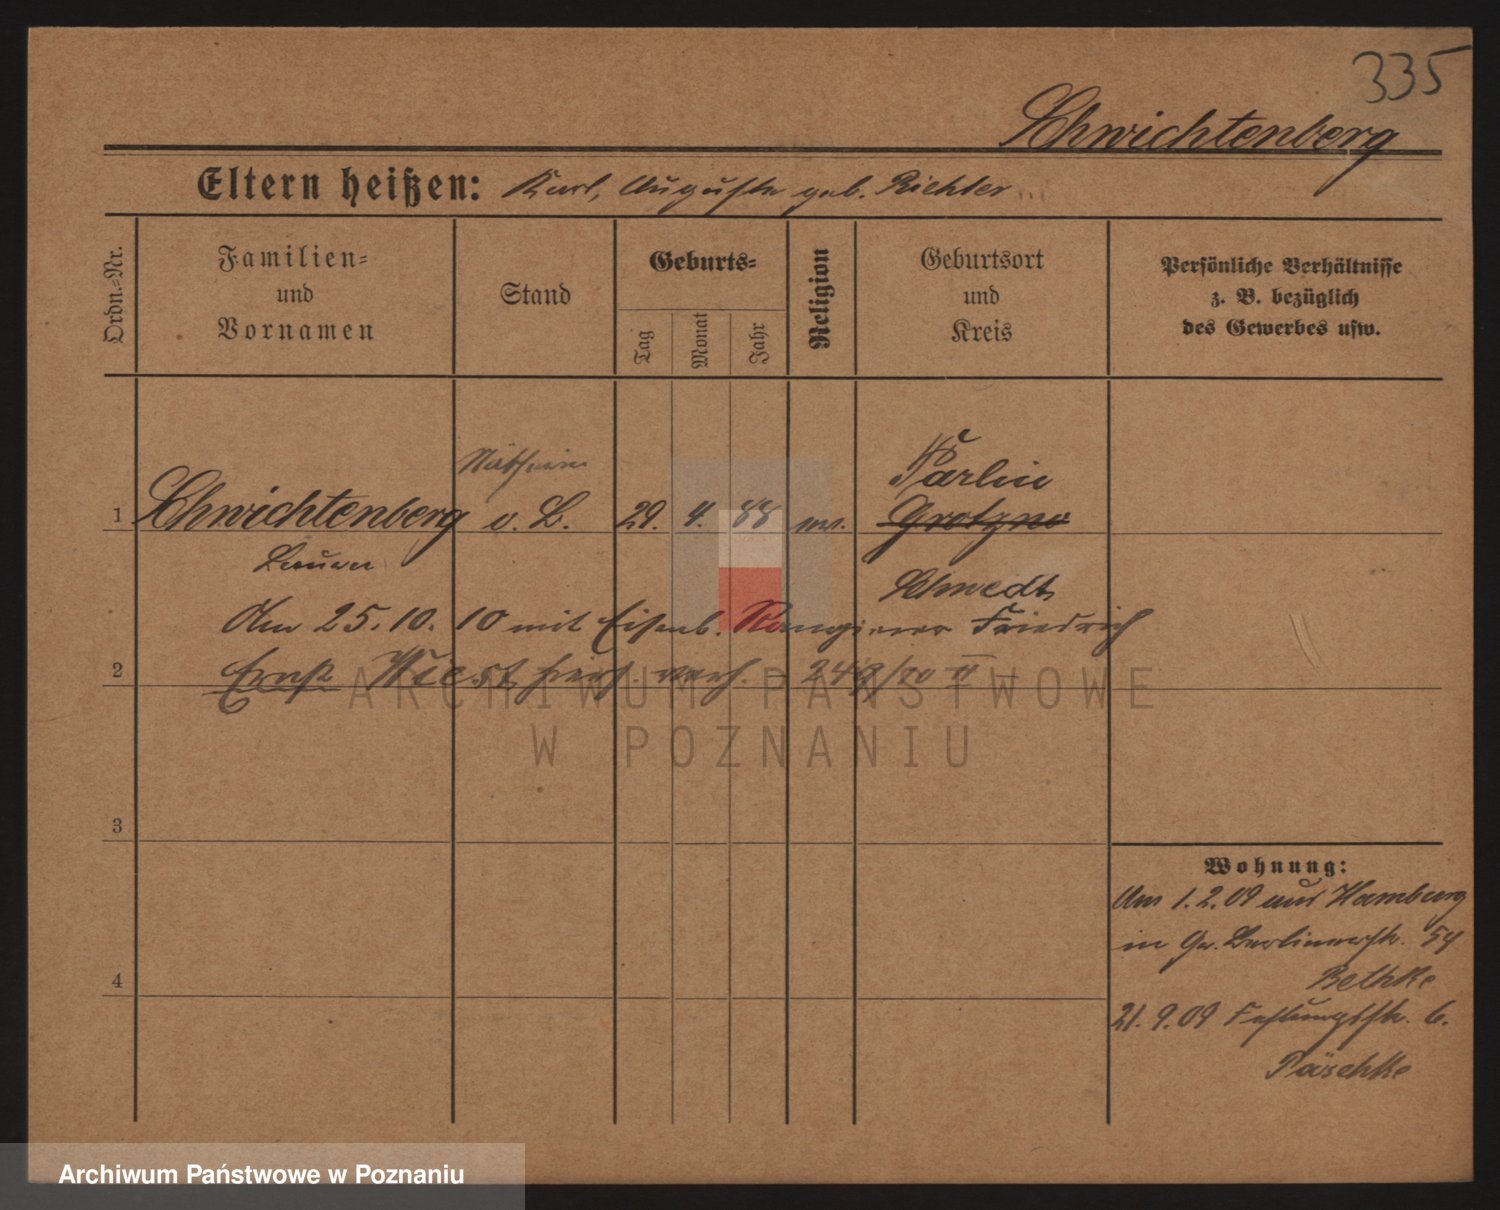 335
Schwichtenberg
Eltern heißen: Karl, Auguste geb. Richter
Ordn.-Nr.
Familien-
und
Vornamen
Stand
Geburts-
Tag
Monat
Jahr
Religion
Geburtsort
und
Kreis
Persönliche Verhältnisse
z. B. bezüglich
des Gewerbes usw.
Näherin
Parlin
1 Schwichtenberg o. B. 29. 4. 88 ev. Grotzno
Schwedt
Am 25. 10. 10 mit Eisenb. Rangierer Friedrich
2 Ernst Wiest verh.
3
4
Wohnung:
Am 1. 2. 09 aus Hamburg
in Gr. Berlinerstr. 54
Bethke
21. 9. 09 Festungsstr. 6.
Päschke
ARCHIWUM PAŃSTWOWE
W POZNANIU
Archiwum Państwowe w Poznaniu